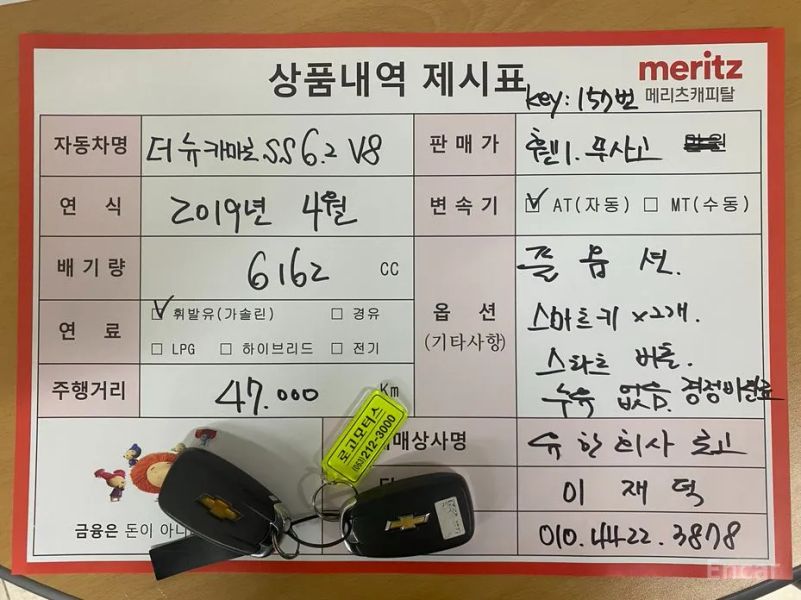 상품내역 제시표
meritz
메리츠캐피탈
key: 157번
자동차명 더 뉴 카마로 SS 6.2 V8 판매가 휀1. 무사고 만원
연 식 2019년 4월 변속기 ☑ AT(자동) ☐ MT(수동)
배기량 6162 CC
옵 션
(기타사항)
풀 옵 션.
스마트키 x2개.
스타트 버튼.
누유 없음. 경정비완료
연 료 ☑ 휘발유(가솔린) ☐ 경유
☐ LPG ☐ 하이브리드 ☐ 전기
주행거리 47.000 Km
로고모터스
(063)212-3000
매상사명 유한회사 로고
이 재 덕
010.4422.3878
금융은 돈이 아니
Encar